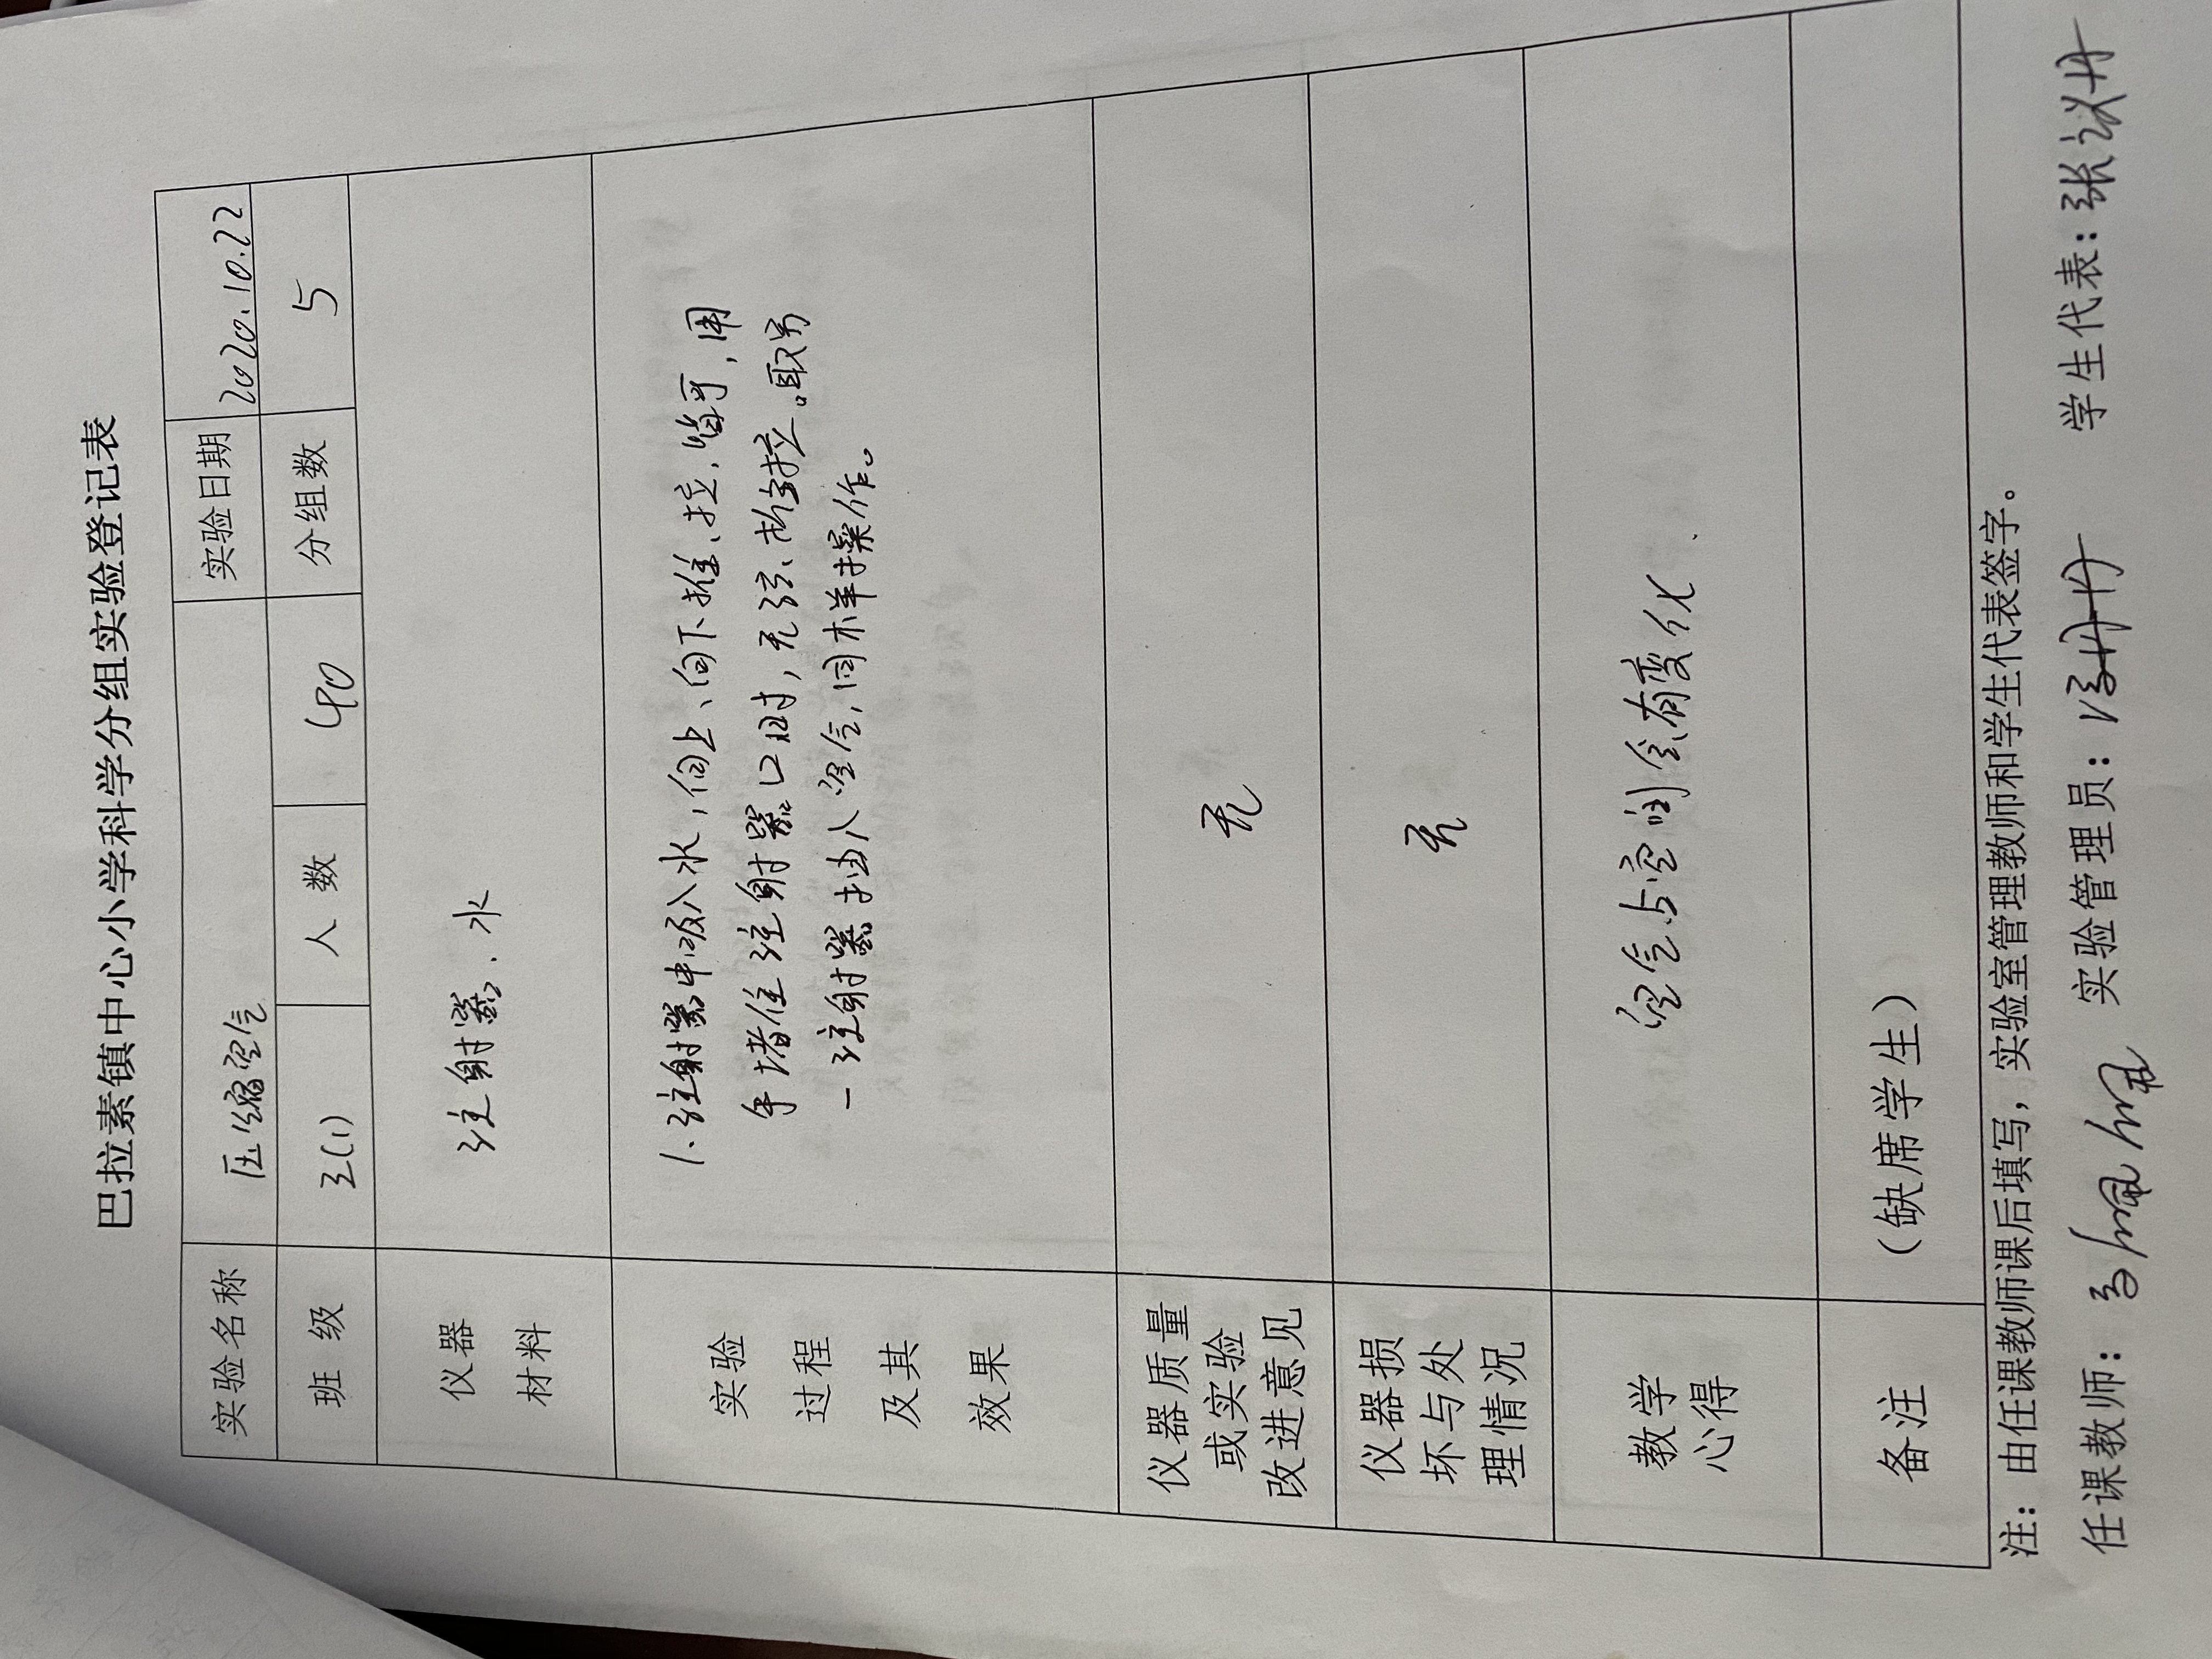 巴拉素镇中心小学科学分组实验登记表
实验名称 压缩空气 实验日期 2020.10.22
班 级 三(1) 人 数 40 分组数 5
仪器 材料 注射器、水
实验 过程 及其 效果
1.注射器中吸入水,向上、向下推、拉,皆可,用
手堵住注射器口时,无法
取另
一注射器 入空气,同样操作。
仪器质量 或实验 改进意见 无
仪器损 坏与处 理情况 无
教学 心得 空气占空间会有变化、
备注 (缺席学生)
注:由任课教师课后填写,实验室管理教师和学生代表签字。
任课教师: 实验管理员: 学生代表:张